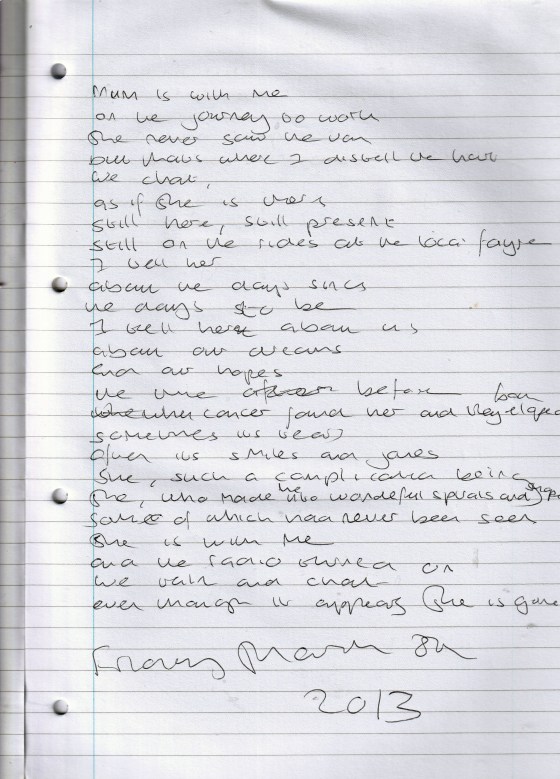 Mum is with me
on the journey to work
She never saw the van
but thats where I distell the hurt
We chat,
as if she is there
still here, still present
still on the rides at the local fayre
I tell her
about the days since
the days to be
I tell her about us
about our dreams
and our hopes
the time before
when cancer found her and they eloped
sometimes its tears
often its smiles and jokes
She, such a complicated being
She, who made the wonderful spirals and
some of which had never been seen
She is with me
and the radio turned on
We talk and chat
even though it appears she is gone
Friday March 8th
2013